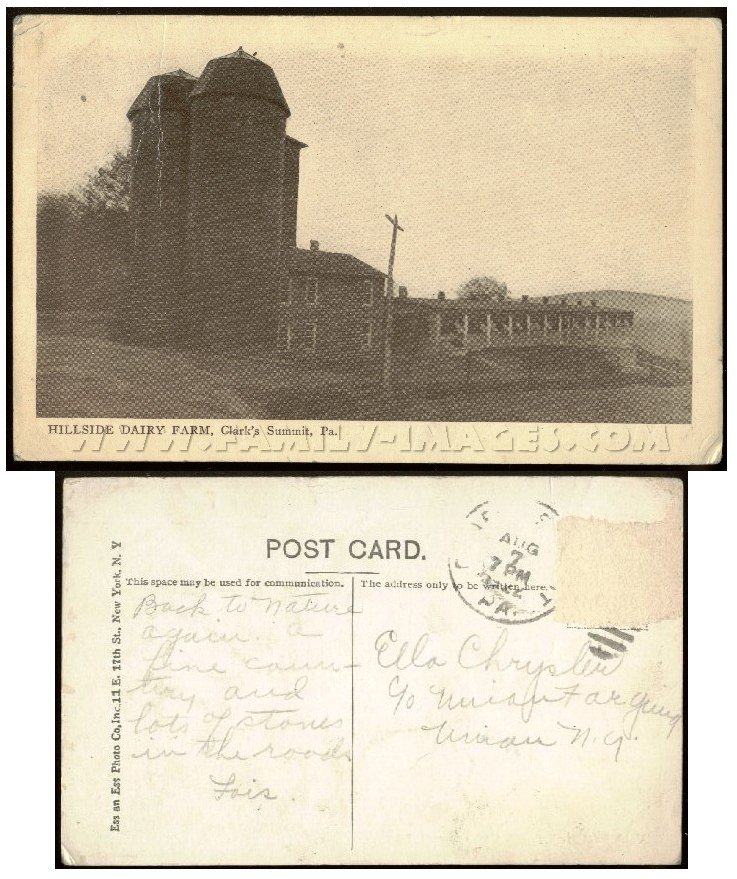 HILLSIDE DAIRY FARM, Clark's Summit, Pa.
WWW.FAMILY-IMAGES.COM
POST CARD.
This space may be used for communication.
The address only to be written here.
Ess an Ess Photo Co, Inc. 11 E. 17th St., New York, N. Y
AUG
7
7 PM
PA.
Back to nature
again. a
fine coun-
try and
lots of stones
in the roads
Lois.
Ella Chrysler
c/o Union Forging
Union N.Y.